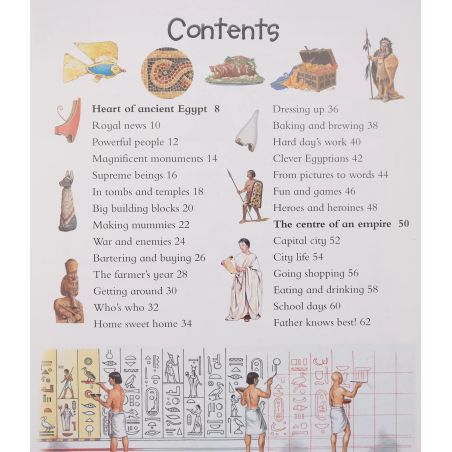 Contents
Heart of ancient Egypt 8
Royal news 10
Powerful people 12
Magnificent monuments 14
Supreme beings 16
In tombs and temples 18
Big building blocks 20
Making mummies 22
War and enemies 24
Bartering and buying 26
The farmer's year 28
Getting around 30
Who's who 32
Home sweet home 34
Dressing up 36
Baking and brewing 38
Hard day's work 40
Clever Egyptians 42
From pictures to words 44
Fun and games 46
Heroes and heroines 48
The centre of an empire 50
Capital city 52
City life 54
Going shopping 56
Eating and drinking 58
School days 60
Father knows best! 62